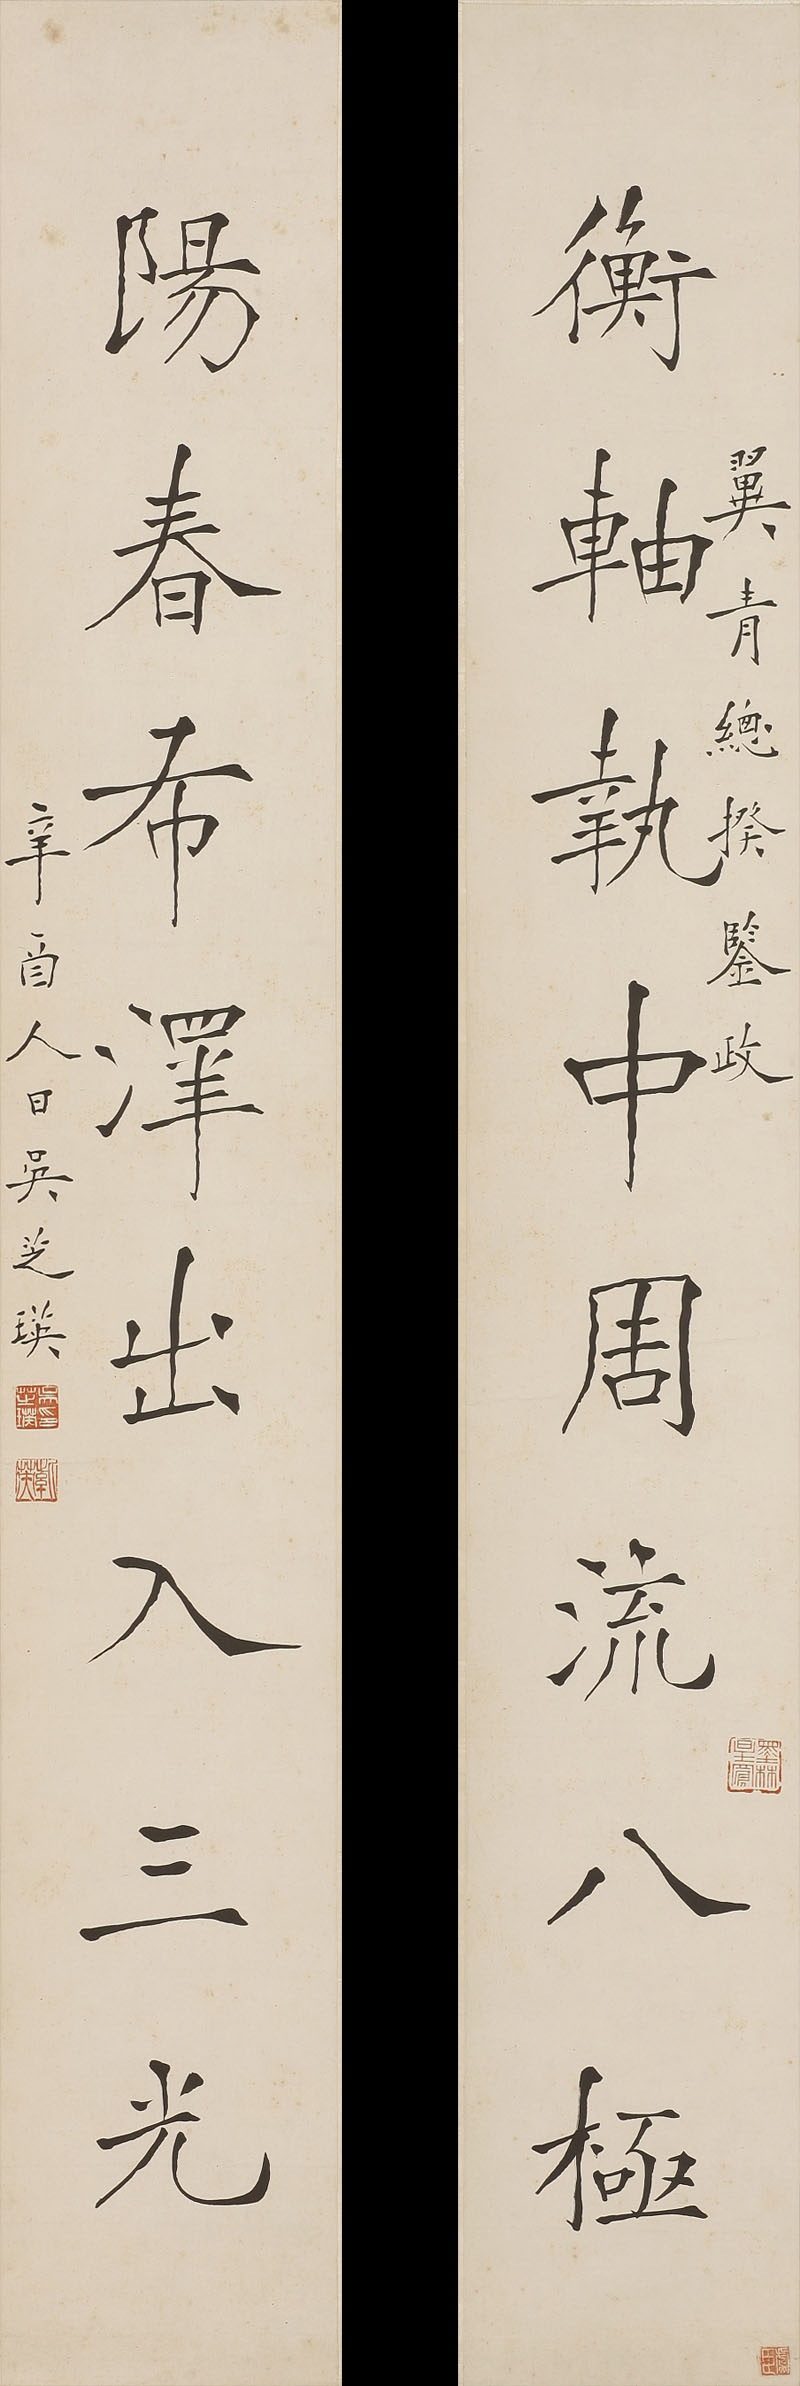 翼青總揆鑒政
衡軸執中周流八極
陽春布澤出入三光
辛酉人日吳芝瑛